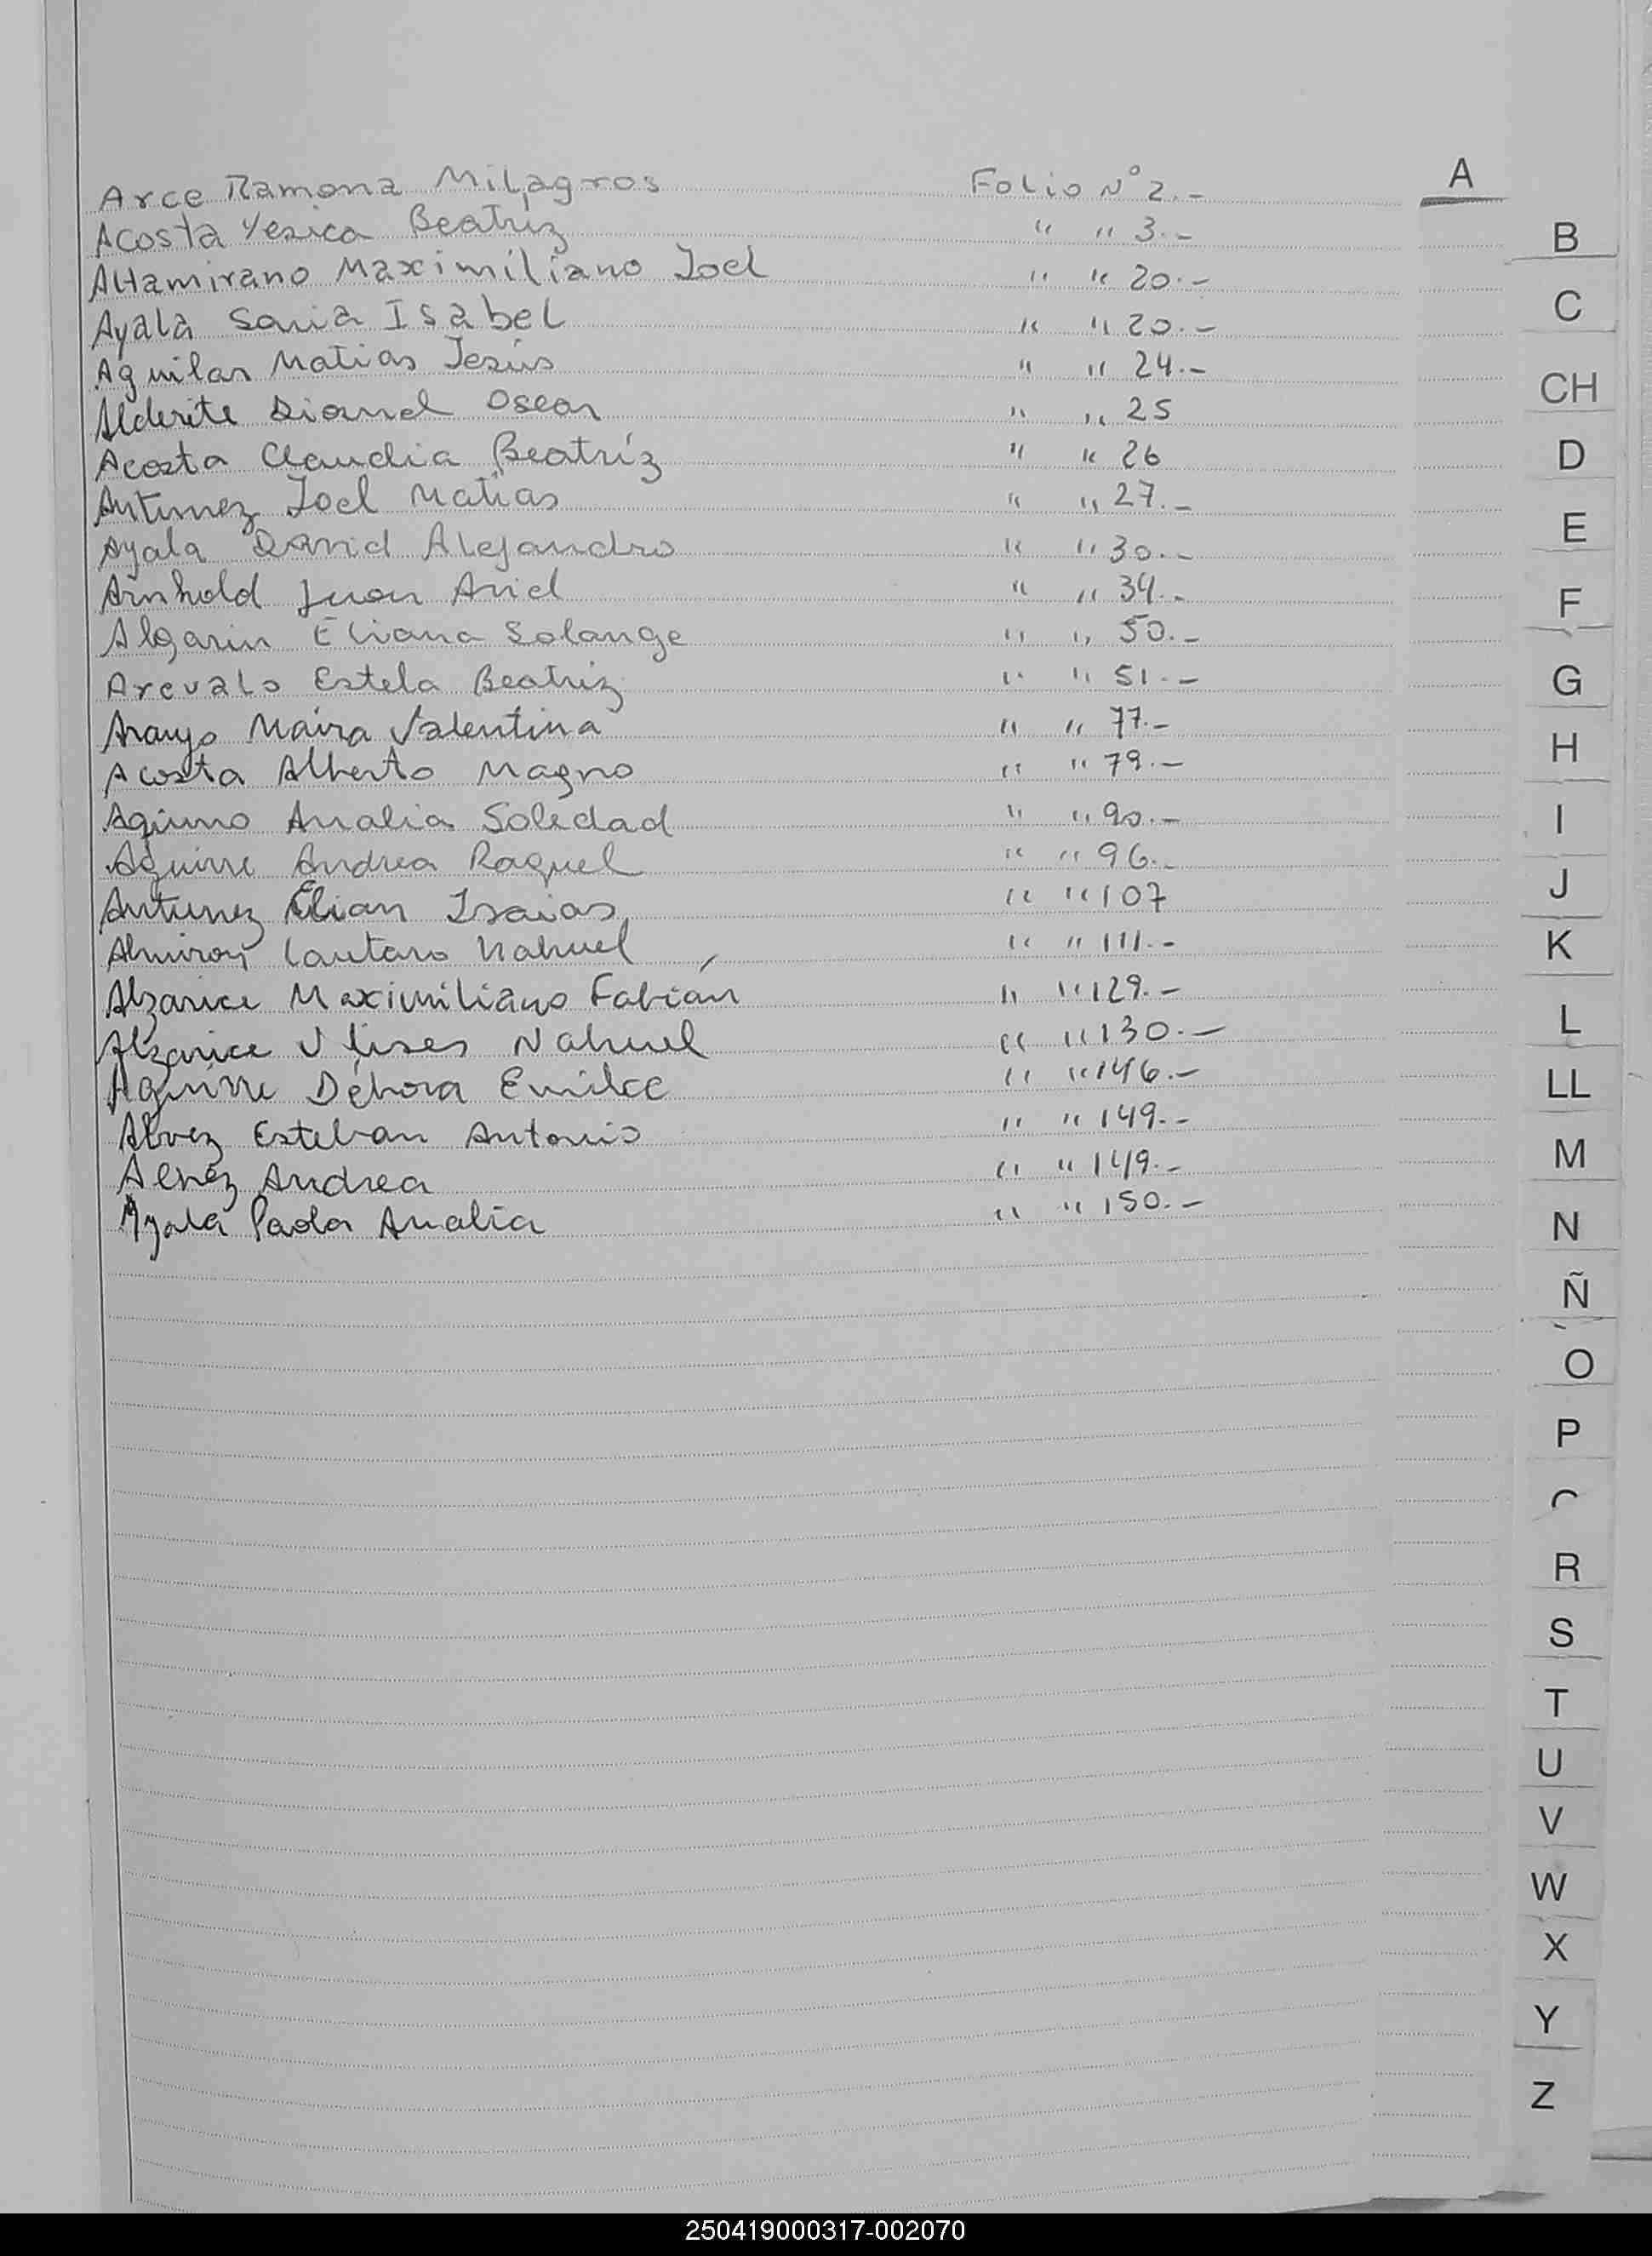 Arce Ramona Milagros Folio N° 2.-
Acosta Yesica Beatriz " " 3.-
Altamirano Maximiliano Joel " " 20.-
Ayala Sonia Isabel " " 20.-
Aguilar Matias Jesús " " 24.-
Alderete Dianel Oscar " " 25
Acosta Claudia Beatríz " " 26
Antunez Joel Matias " " 27.-
Ayala David Alejandro " " 30.-
Arnhold Juan Ariel " " 34.-
Algarin Eliana Solange " " 50.-
Arevalo Estela Beatriz " " 51.-
Araujo Maira Valentina " " 77.-
Acosta Alberto Magno " " 79.-
Aquino Analia Soledad " " 90.-
Aguirre Andrea Raquel " " 96.-
Antunez Elian Isaias " " 107
Almiron Lautaro Nahuel " " 111.-
Alzarice Maximiliano Fabián " " 129.-
Alzarice Ulises Nahuel " " 130.-
Aguirre Débora Emilce " " 146.-
Alvez Esteban Antonio " " 149.-
Alvez Andrea " " 149.-
Ayala Paola Analia " " 150.-
A
B
C
CH
D
E
F
G
H
I
J
K
L
LL
M
N
Ñ
O
P
R
S
T
U
V
W
X
Y
Z
250419000317-002070